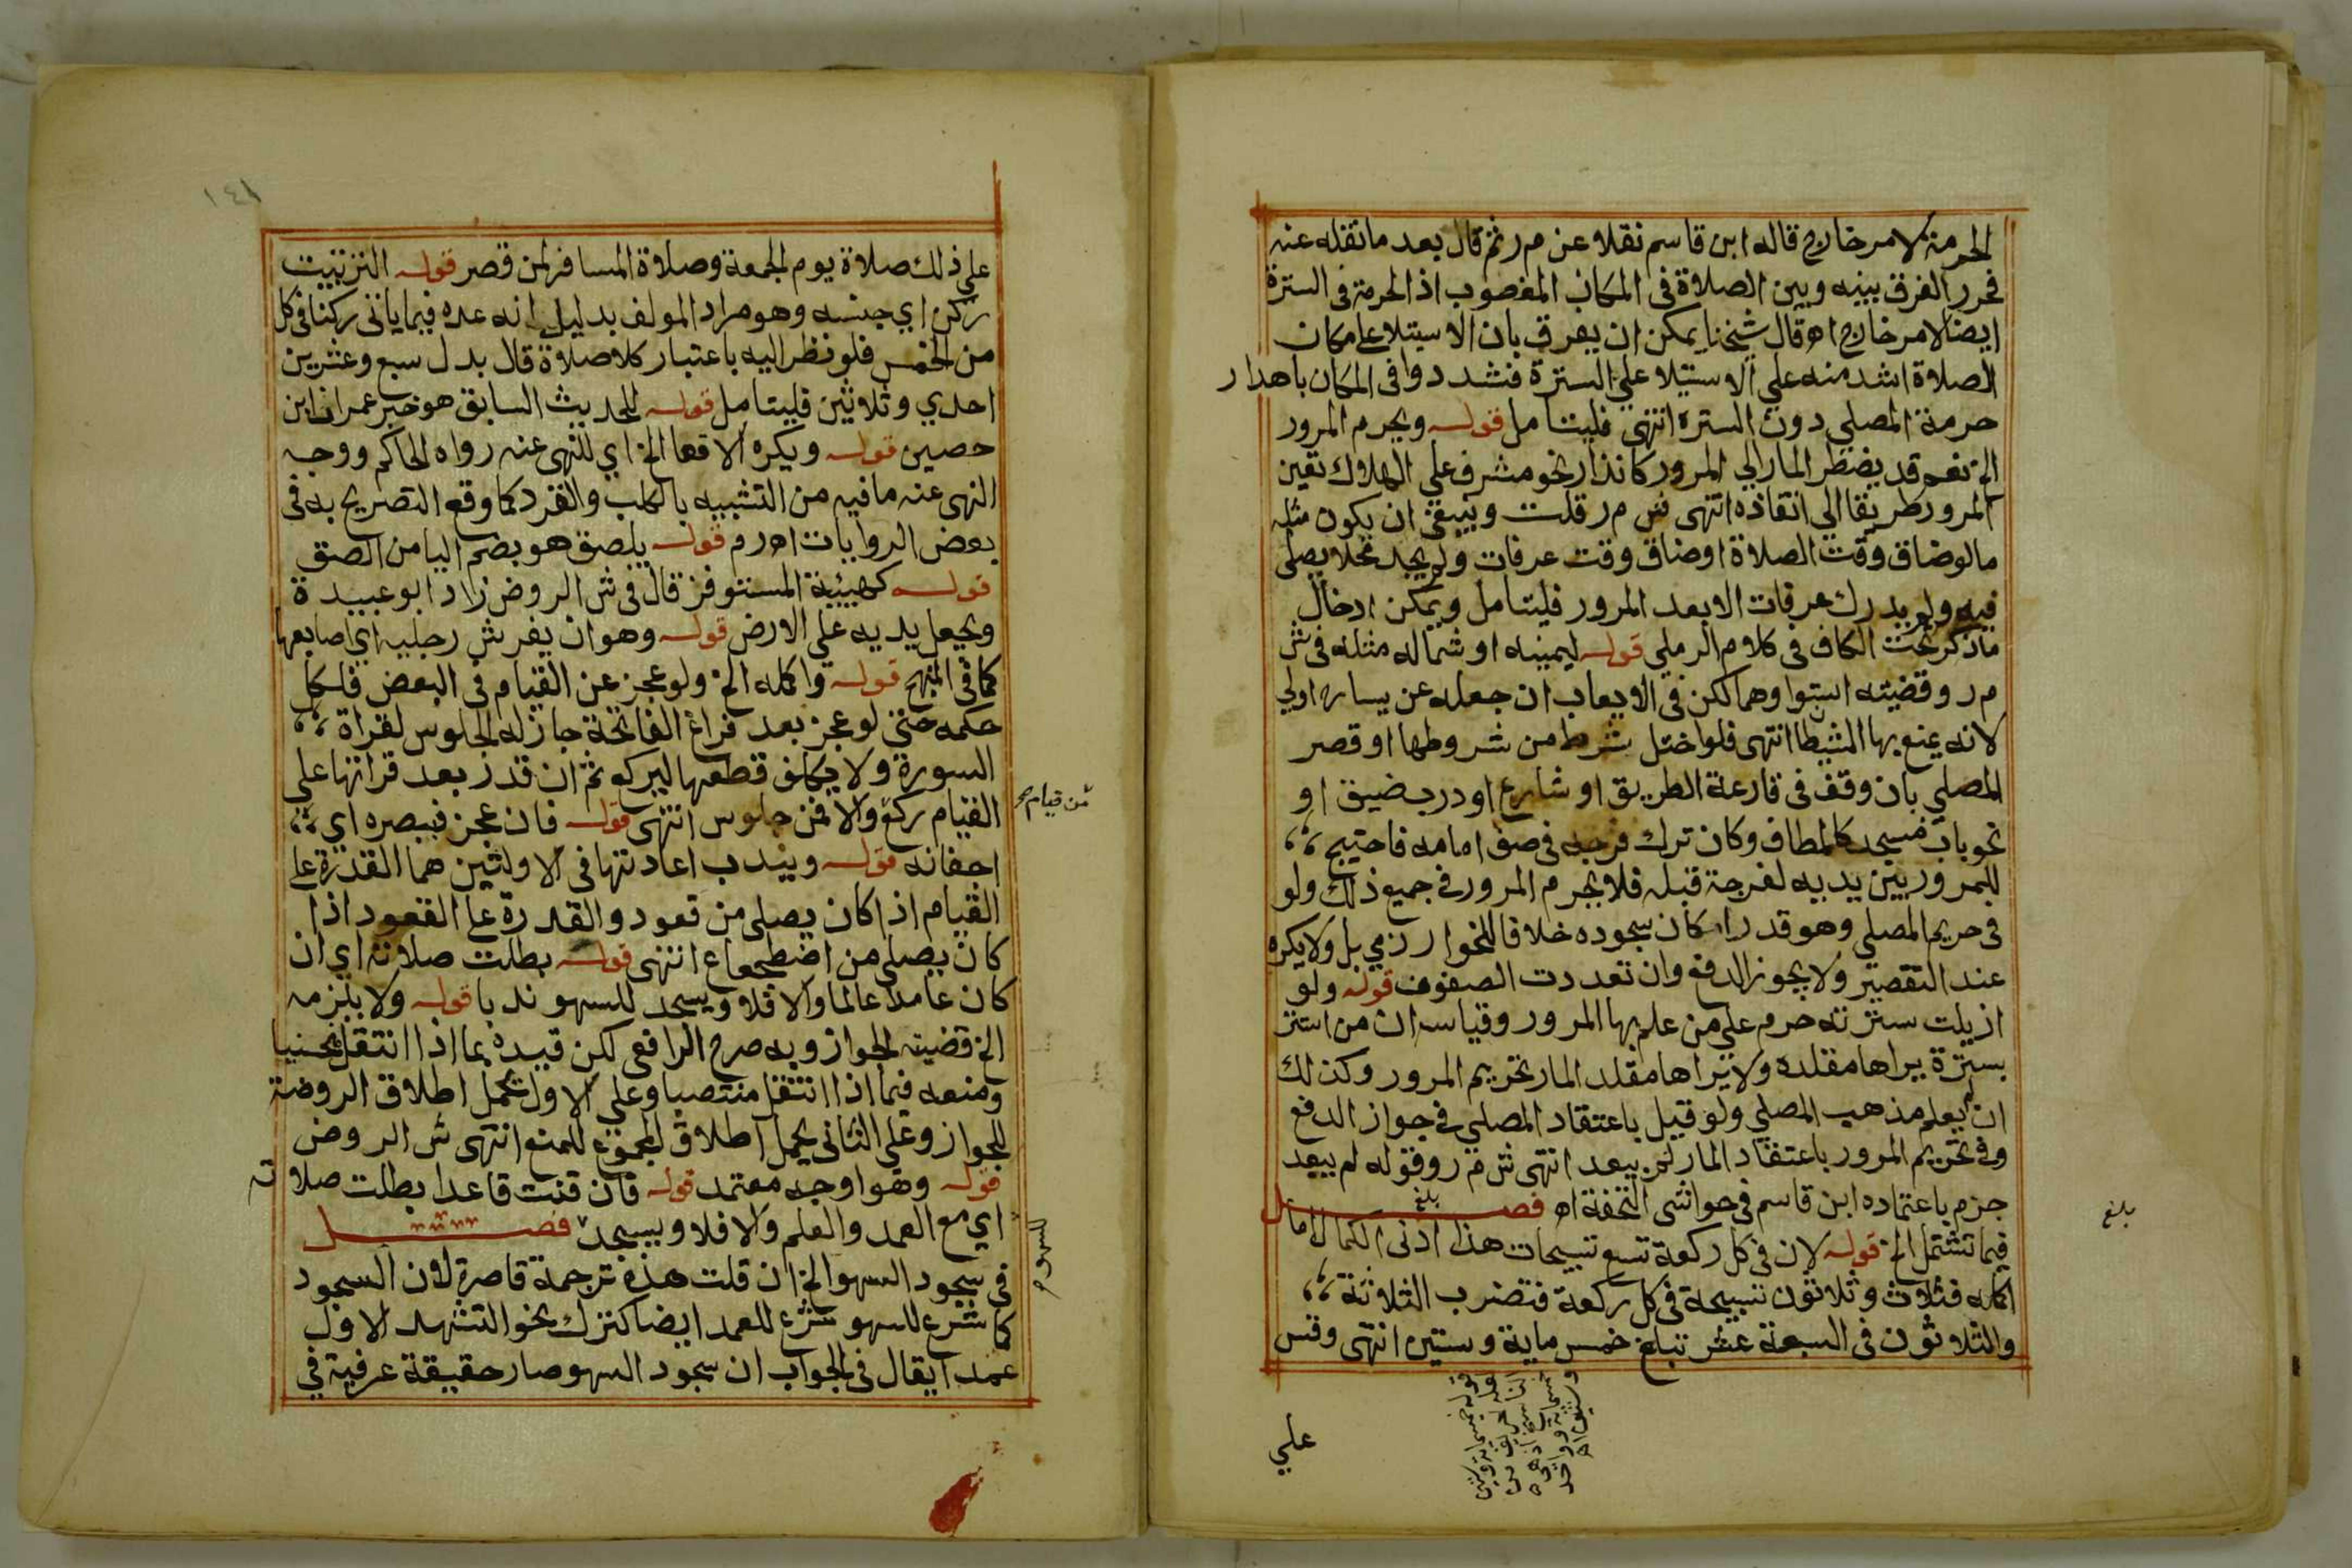 الحرمة لامر خارج قاله ابن قاسم نقلا عن م ر ثم قال بعد ما نقله عنه
فحرر الفرق بينه وبين الصلاة فى المكان المغصوب اذ الحرمة فى السترة
ايضا لامر خارج اه قال شيخنا يمكن ان يفرق بان الاستيلا على مكان
الصلاة اشد منه علي الاستيلا علي السترة فشددوا فى المكان باهدار
حرمة المصلي دون السترة انتهى فليتامل قوله ويحرم المرور
الخ نعم قد يضطر المار الي المرور كانذار نحو مشرف علي الهلاك تعين
المرور طريقا الي انقاذه انتهى ش م ر قلت وينبغى ان يكون مثله
مالو ضاق وقت الصلاة او ضاق وقت عرفات ولم يجد محلا يصلى
فيه ولم يدرك عرفات الا بعد المرور فليتامل ويمكن ادخال
ماذكر تحت الكاف فى كلام الرملي قوله ليمينه او شماله مثله فى ش
م ر وقضيته استواوهما لكن فى الايعاب ان جعله عن يساره اولي
لانه يمنع بها الشيطان انتهى فلو اختل شرط من شروطها او قصر
المصلي بان وقف فى قارعة الطريق او شارع او درب ضيق او
نحو باب مسجد كالمطاف وكان ترك فرجه فى صف امامه فاحتيج
للمرور بين يديه لفرجة قبله فلا يحرم المرور فى جميع ذلك ولو
فى حريم المصلي وهو قدر امكان سجوده خلافا للخوارزمي بل ولا يكره
عند التقصير ولا يجوز الدفع وان تعددت الصفوف قوله ولو
ازيلت سترته حرم علي من علم بها المرور وقياسه ان من استتر
بسترة يراها مقلده ولا يراها مقلد المار تحريم المرور وكذلك
ان لم يعلم مذهب المصلي ولو قيل باعتقاد المصلي فى جواز الدفع
وفى تحريم المرور باعتقاد المار لم يبعد انتهى ش م ر وقوله لم يبعد
جزم باعتماده ابن قاسم فى حواشى التحفة اه فصل
بلغ
بلغ
فيما تشتمل الخ قوله لان فى كل ركعة تسع تسبيحات هذا ادنى الكمال اما
اكمله فثلاث وثلاثون تسبيحة فى كل ركعة فتضرب الثلاثة
والثلاثون فى السبعة عشر تبلغ خمس ماية وستين انتهى وقس
علي
١٤١
علي ذلك صلاة يوم الجمعة وصلاة المسافر لمن قصر قوله الترتيب
ركن اي جنسه وهو مراد المولف بدليل انه عده فيما ياتى ركنا فى كل
من الخمس فلو نظر اليه باعتبار كل صلاة قال بدل سبع وعشرين
احدي وثلاثين فليتامل قوله للحديث السابق هو خبر عمران ابن
حصين قوله ويكره الاقعا الخ اي للنهى عنه رواه الحاكم ووجه
النهى عنه ما فيه من التشبيه بالكلب والقرد كما وقع التصريح به فى
بعض الروايات اه م ر قوله يلصق هو بضم اليا من الصق
قوله كهيئة المستوفز قال فى ش الروض زاد ابو عبيدة
ويجعل يديه على الارض قوله وهو ان يفرش رجليه اي اصابعها
كما فى المنهج قوله واكمله الخ ولو عجز عن القيام فى البعض فلكل
حكمه حتى لو عجز بعد فراغ الفاتحة جاز له الجلوس لقراة
السورة ولا يكلف قطعها ليركع ثم ان قدر بعد قراتها على
القيام ركع والا فمن جلوس انتهى قوله فان عجز فببصره اي
احفانه قوله ويندب اعادتها فى الاولتين هما القدرة على
القيام اذا كان يصلى من قعود والقدرة على القعود اذا
كان يصلى من اضطجاع انتهى قوله بطلت صلاته اي ان
كان عامدا عالما والا فلا ويسجد للسهو ندبا قوله ولا يلزمه
الخ قضيته الجواز وبه صرح الرافعى لكن قيده بما اذا انتقل منحنيا
ومنعه فيما اذا انتقل منتصبا وعلي الاول يحمل اطلاق الروضة
الجواز وعلى الثانى يحمل اطلاق المجموع للمنع انتهى ش الروض
قوله وهو اوجه معتمد قوله فان قنت قاعدا بطلت صلاته
اي مع العمد والعلم والا فلا ويسجد فصل
فى سجود السهو الخ ان قلت هذه ترجمة قاصرة لان السجود
كما شرع للسهو شرع للعمد ايضا كترك نحو التشهد الاول
عمدا يقال فى الجواب ان سجود السهو صار حقيقة عرفية فى
من قيام